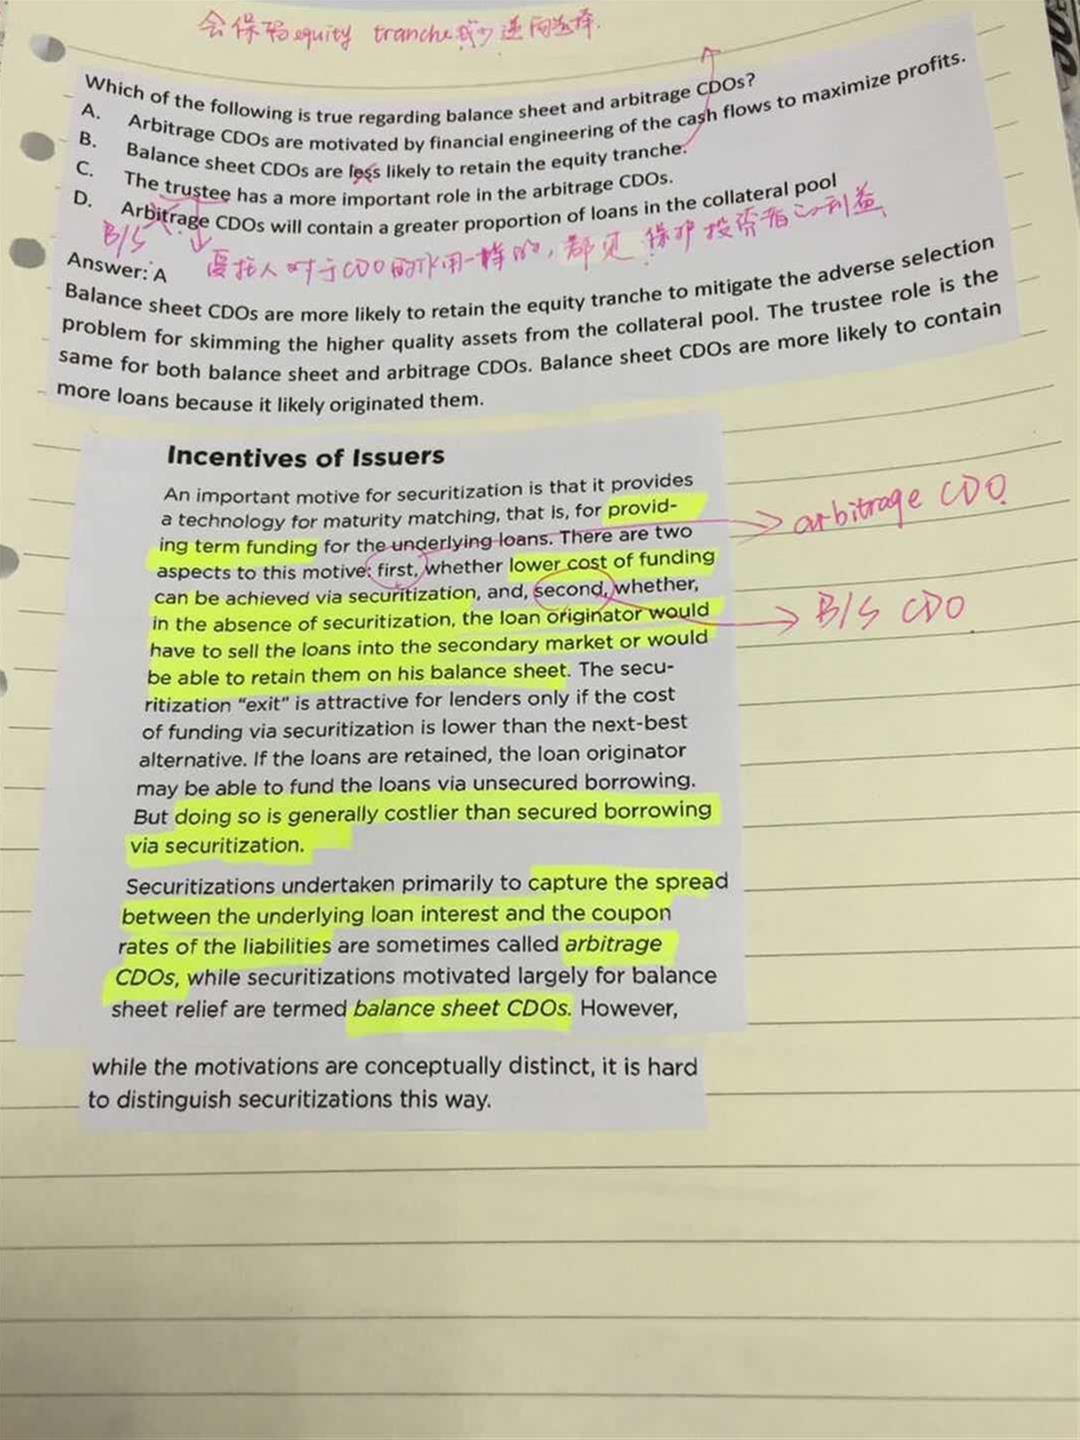 会保留equity tranche减少逆向选择.
Which of the following is true regarding balance sheet and arbitrage CDOs?
A. Arbitrage CDOs are motivated by financial engineering of the cash flows to maximize profits.
B. Balance sheet CDOs are less likely to retain the equity tranche.
C. The trustee has a more important role in the arbitrage CDOs.
D. Arbitrage CDOs will contain a greater proportion of loans in the collateral pool
B/S
受托人对于CDO的作用一样的，都是保护投资者的利益
Answer: A
Balance sheet CDOs are more likely to retain the equity tranche to mitigate the adverse selection
problem for skimming the higher quality assets from the collateral pool. The trustee role is the
same for both balance sheet and arbitrage CDOs. Balance sheet CDOs are more likely to contain
more loans because it likely originated them.
Incentives of Issuers
An important motive for securitization is that it provides
a technology for maturity matching, that is, for provid-
ing term funding for the underlying loans. There are two
aspects to this motive: first, whether lower cost of funding
can be achieved via securitization, and, second, whether,
in the absence of securitization, the loan originator would
have to sell the loans into the secondary market or would
be able to retain them on his balance sheet. The secu-
ritization “exit” is attractive for lenders only if the cost
of funding via securitization is lower than the next-best
alternative. If the loans are retained, the loan originator
may be able to fund the loans via unsecured borrowing.
But doing so is generally costlier than secured borrowing
via securitization.
Securitizations undertaken primarily to capture the spread
between the underlying loan interest and the coupon
rates of the liabilities are sometimes called arbitrage
CDOs, while securitizations motivated largely for balance
sheet relief are termed balance sheet CDOs. However,
while the motivations are conceptually distinct, it is hard
to distinguish securitizations this way.
arbitrage CDO
B/S CDO